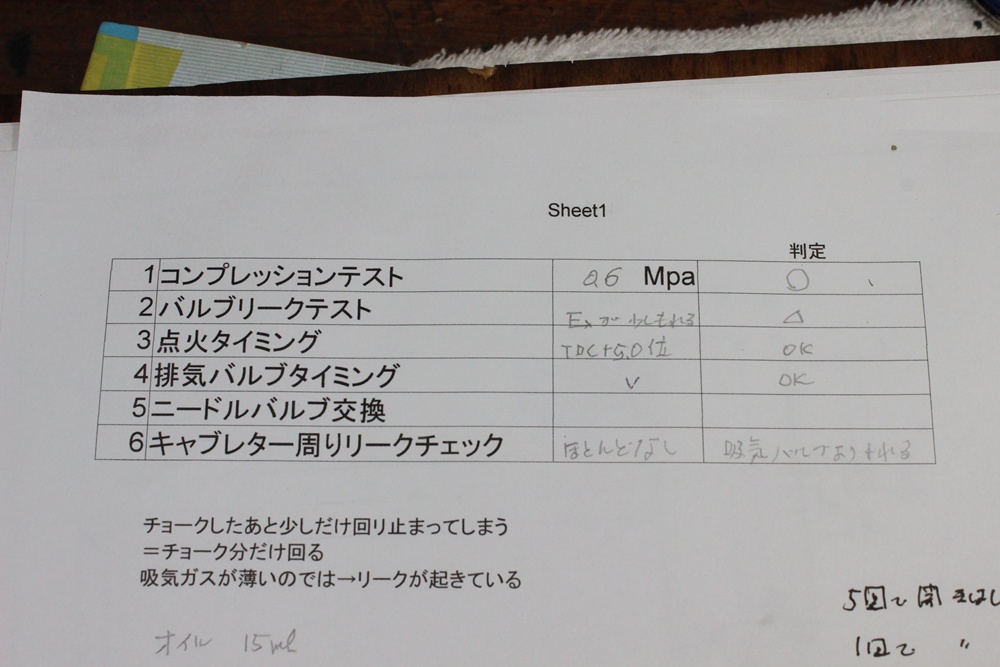 Sheet1
判定
1 コンプレッションテスト 0.6 Mpa ○
2 バルブリークテスト Exが少しもれる △
3 点火タイミング TDC+5.0位 OK
4 排気バルブタイミング v OK
5 ニードルバルブ交換
6 キャブレター周りリークチェック ほとんどなし 吸気バルブよりもれる
チョークしたあと少しだけ回り止まってしまう
=チョーク分だけ回る
吸気ガスが薄いのでは→リークが起きている
5回で開きはし
オイル 15ml
1回で 〃